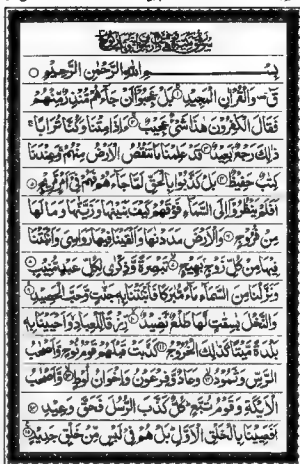 بِسْمِ اللهِ الرَّحْمٰنِ الرَّحِيْمِ
قٓ وَالْقُرْاٰنِ الْمَجِيْدِ ۝۱ بَلْ عَجِبُوْٓا اَنْ جَآءَهُمْ مُّنْذِرٌ مِّنْهُمْ
فَقَالَ الْكٰفِرُوْنَ هٰذَا شَیْءٌ عَجِيْبٌ ۝۲ ءَاِذَا مِتْنَا وَكُنَّا تُرَابًا
ذٰلِكَ رَجْعٌۢ بَعِيْدٌ ۝۳ قَدْ عَلِمْنَا مَا تَنْقُصُ الْاَرْضُ مِنْهُمْ وَعِنْدَنَا
كِتٰبٌ حَفِيْظٌ ۝۴ بَلْ كَذَّبُوْا بِالْحَقِّ لَمَّا جَآءَهُمْ فَهُمْ فِیْٓ اَمْرٍ مَّرِيْجٍ ۝۵
اَفَلَمْ يَنْظُرُوْٓا اِلَى السَّمَآءِ فَوْقَهُمْ كَيْفَ بَنَيْنٰهَا وَزَيَّنّٰهَا وَمَا لَهَا
مِنْ فُرُوْجٍ ۝۶ وَالْاَرْضَ مَدَدْنٰهَا وَاَلْقَيْنَا فِيْهَا رَوَاسِیَ وَاَنْۢبَتْنَا
فِيْهَا مِنْ كُلِّ زَوْجٍۭ بَهِيْجٍ ۝۷ تَبْصِرَةً وَّذِكْرٰى لِكُلِّ عَبْدٍ مُّنِيْبٍ ۝۸
وَنَزَّلْنَا مِنَ السَّمَآءِ مَآءً مُّبٰرَكًا فَاَنْۢبَتْنَا بِهٖ جَنّٰتٍ وَّحَبَّ الْحَصِيْدِ ۝۹
وَالنَّخْلَ بٰسِقٰتٍ لَّهَا طَلْعٌ نَّضِيْدٌ ۝۱۰ رِّزْقًا لِّلْعِبَادِ وَاَحْيَيْنَا بِهٖ
بَلْدَةً مَّيْتًا كَذٰلِكَ الْخُرُوْجُ ۝۱۱ كَذَّبَتْ قَبْلَهُمْ قَوْمُ نُوْحٍ وَّاَصْحٰبُ
الرَّسِّ وَثَمُوْدُ ۝۱۲ وَعَادٌ وَّفِرْعَوْنُ وَاِخْوَانُ لُوْطٍ ۝۱۳ وَّاَصْحٰبُ
الْاَيْكَةِ وَقَوْمُ تُبَّعٍ كُلٌّ كَذَّبَ الرُّسُلَ فَحَقَّ وَعِيْدِ ۝۱۴
اَفَعَيِيْنَا بِالْخَلْقِ الْاَوَّلِ بَلْ هُمْ فِیْ لَبْسٍ مِّنْ خَلْقٍ جَدِيْدٍ ۝۱۵